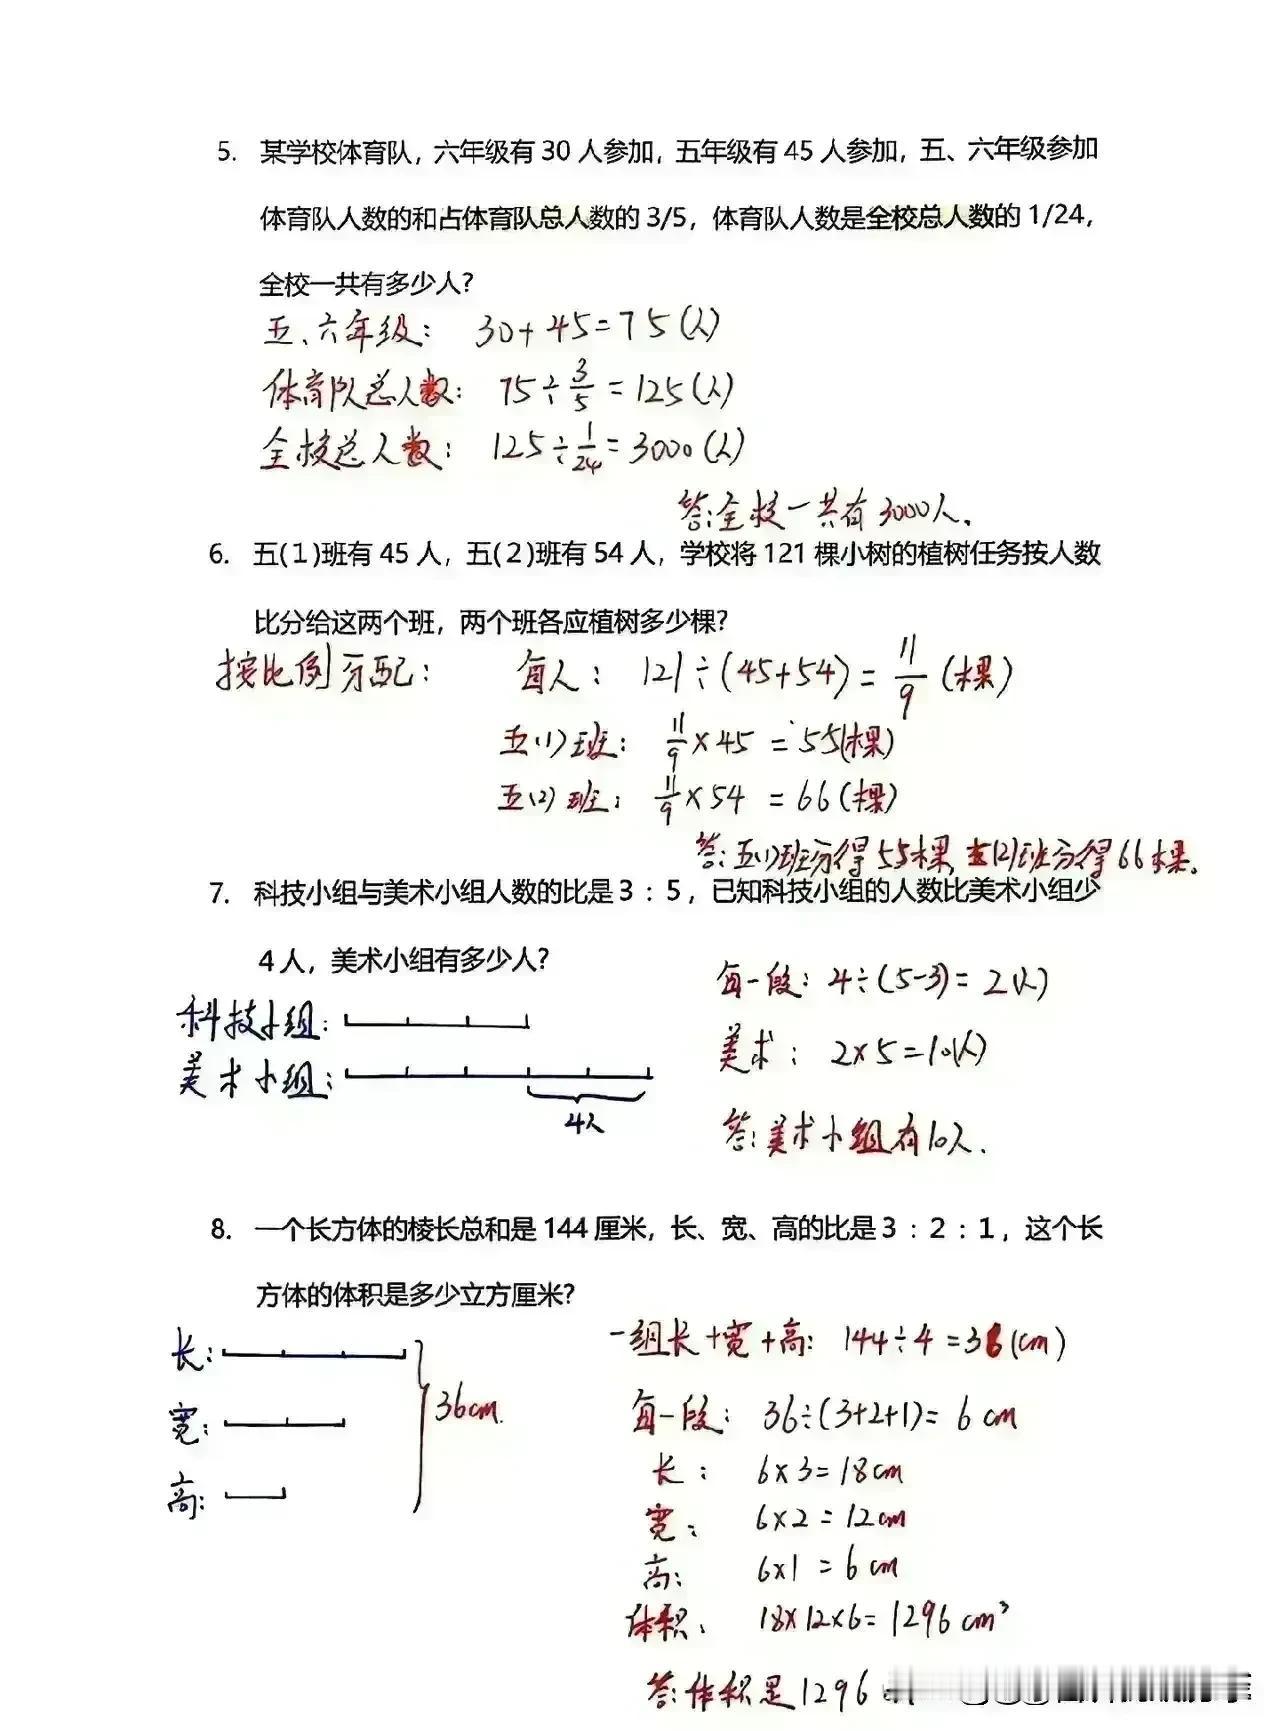 5. 某学校体育队，六年级有 30 人参加，五年级有 45 人参加，五、六年级参加
体育队人数的和占体育队总人数的 3/5，体育队人数是全校总人数的 1/24，
全校一共有多少人?
五、六年级： 30+45=75(人)
体育队总人数： 75÷3/5=125(人)
全校总人数： 125÷1/24=3000(人)
答:全校一共有3000人.
6. 五(1)班有 45 人，五(2)班有 54 人，学校将 121 棵小树的植树任务按人数
比分给这两个班，两个班各应植树多少棵?
按比例分配： 每人： 121÷(45+54)=11/9(棵)
五(1)班： 11/9×45=55(棵)
五(2)班： 11/9×54=66(棵)
答:五(1)班分得55棵,五(2)班分得66棵.
7. 科技小组与美术小组人数的比是 3 : 5，已知科技小组的人数比美术小组少
4 人，美术小组有多少人?
每一段: 4÷(5-3)=2(人)
科技小组:
美术: 2×5=10(人)
美术小组:
4人
答:美术小组有10人.
8. 一个长方体的棱长总和是 144 厘米，长、宽、高的比是 3 : 2 : 1，这个长
方体的体积是多少立方厘米?
一组长+宽+高: 144÷4=36(cm)
长:
36cm.
每一段: 36÷(3+2+1)=6cm
宽:
长: 6×3=18cm
高:
宽: 6×2=12cm
高: 6×1=6cm
体积: 18×12×6=1296cm³
答:体积是1296